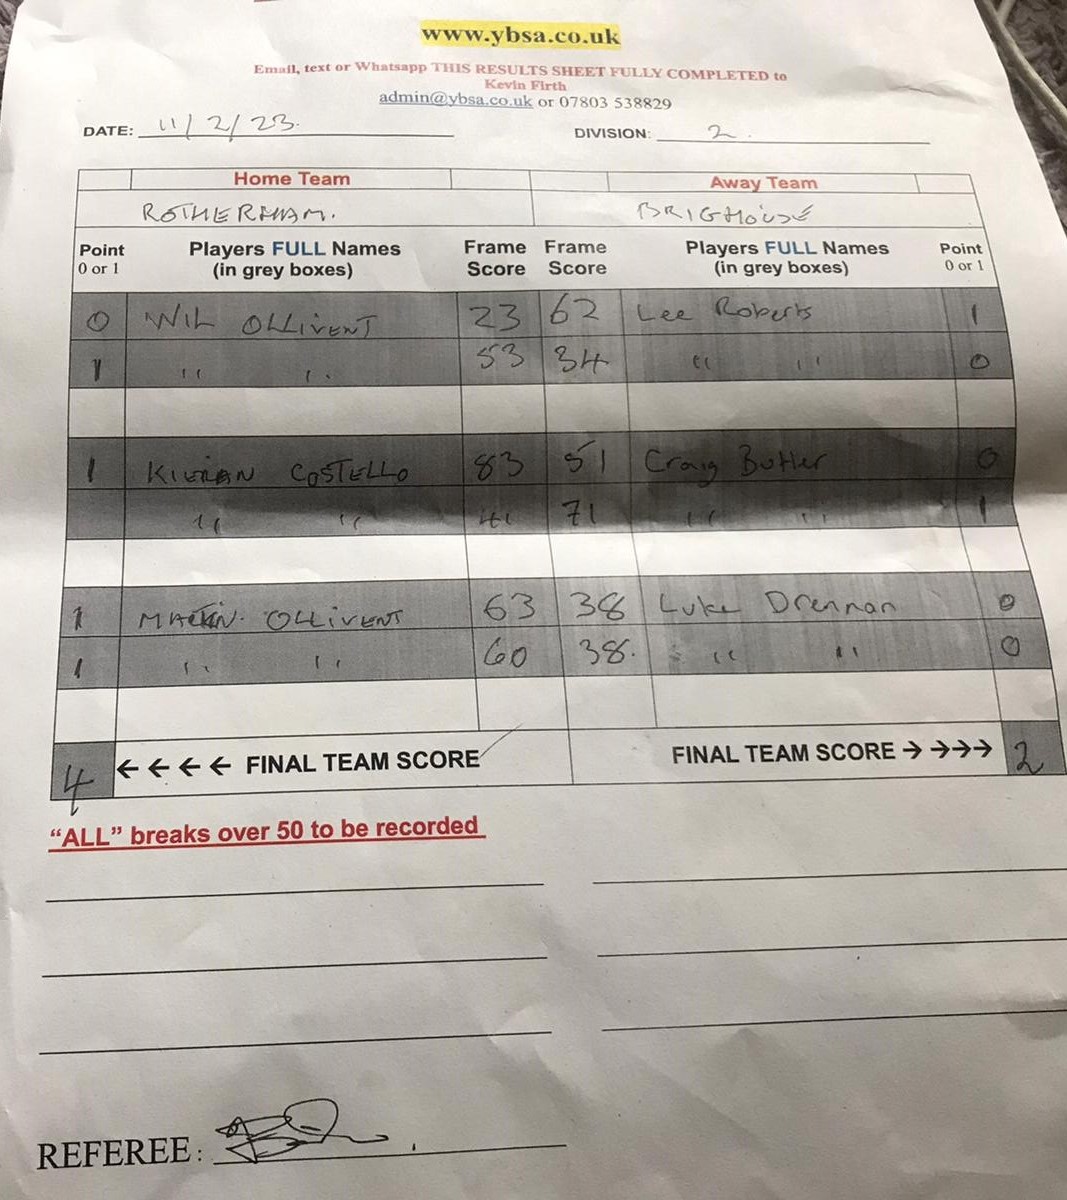 www.ybsa.co.uk
Email, text or Whatsapp THIS RESULTS SHEET FULLY COMPLETED to
Kevin Firth
admin@ybsa.co.uk or 07803 538829
DATE: 11/2/23. DIVISION: 2.
Home Team Away Team
ROTHERHAM. BRIGHOUSE
Point Players FULL Names Frame Frame Players FULL Names Point
0 or 1 (in grey boxes) Score Score (in grey boxes) 0 or 1
0 WIL OLLIVENT 23 62 Lee Roberts 1
1 " " 53 34 " " 0
1 KIERAN COSTELLO 83 51 Craig Butler 0
" " 41 71 " " 1
1 OLLIVENT 63 38 Luke Drennan 0
1 " " 60 38. " " 0
4 ← ← ← ← FINAL TEAM SCORE FINAL TEAM SCORE → →→→ 2
"ALL" breaks over 50 to be recorded
REFEREE: